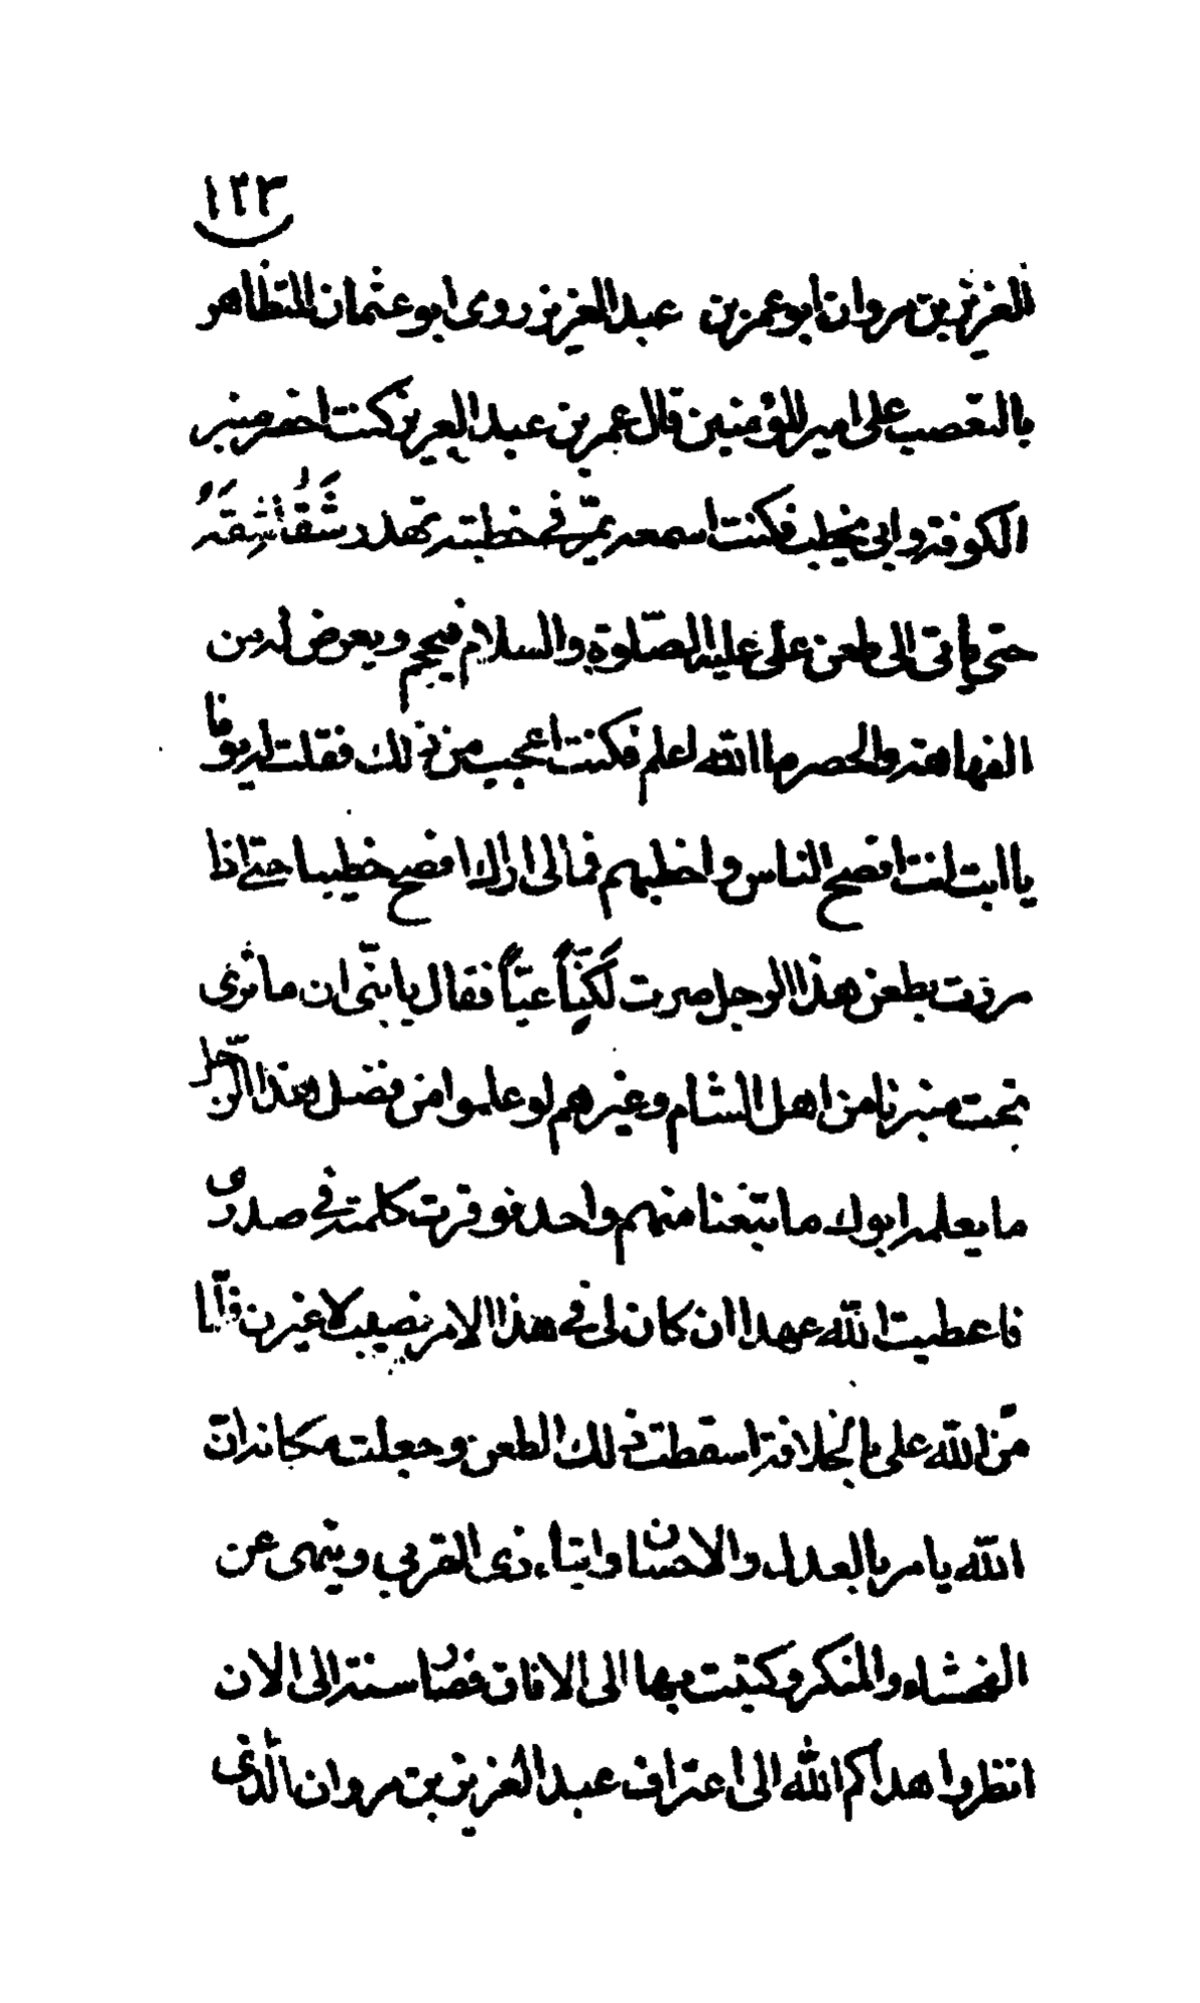 ١٢٣
العزيز بن مروان ابو عمر بن عبد العزيز روى ابو عثمان المتظاهر
بالتعصب على امير المؤمنين قال عمر بن عبد العزيز كنت احضر منبر
الكوفة وابى يخطب فكنت اسمعه يمرّ في خطبته تهدر شَقٰاشِقَهُ
حتى ياتى الى طعن على عليه الصّلوة والسلام فيجم ويعرض له من
الفهاهة والحصر ما الله اعلم فكنت اعجب من ذلك فقلت له يوما
يا ابت انت افصح الناس واخطبهم فمالى اراك افصح خطيبا حتى اذا
مررت بطعن هذا الرجل صرت لَكِنًّا عيّاً فقال يا بنّى ان ما ترى
تحت منبرنا من اهل الشام وغيرهم لو علموا من فضل هذا الرّجل
ما يعلمه ابوك ما تبّعنا منهم واحد فوقرت كلمته في صدرى
فاعطيت الله عهدا ان كان لى في هذا الامر نصيب لاغيرن فلمّا
منّ الله على بالخلافة اسقطت ذلك الطعن وجعلت مكانه ان
الله يامر بالعدل والاحسان وايتاء ذى القربي وينهى عن
الفحشاء والمنكر وكتبت بها الى الافاق فصار سنة الى الان
انظروا هداكم الله الى اعتراف عبد العزيز بن مروان الّذى